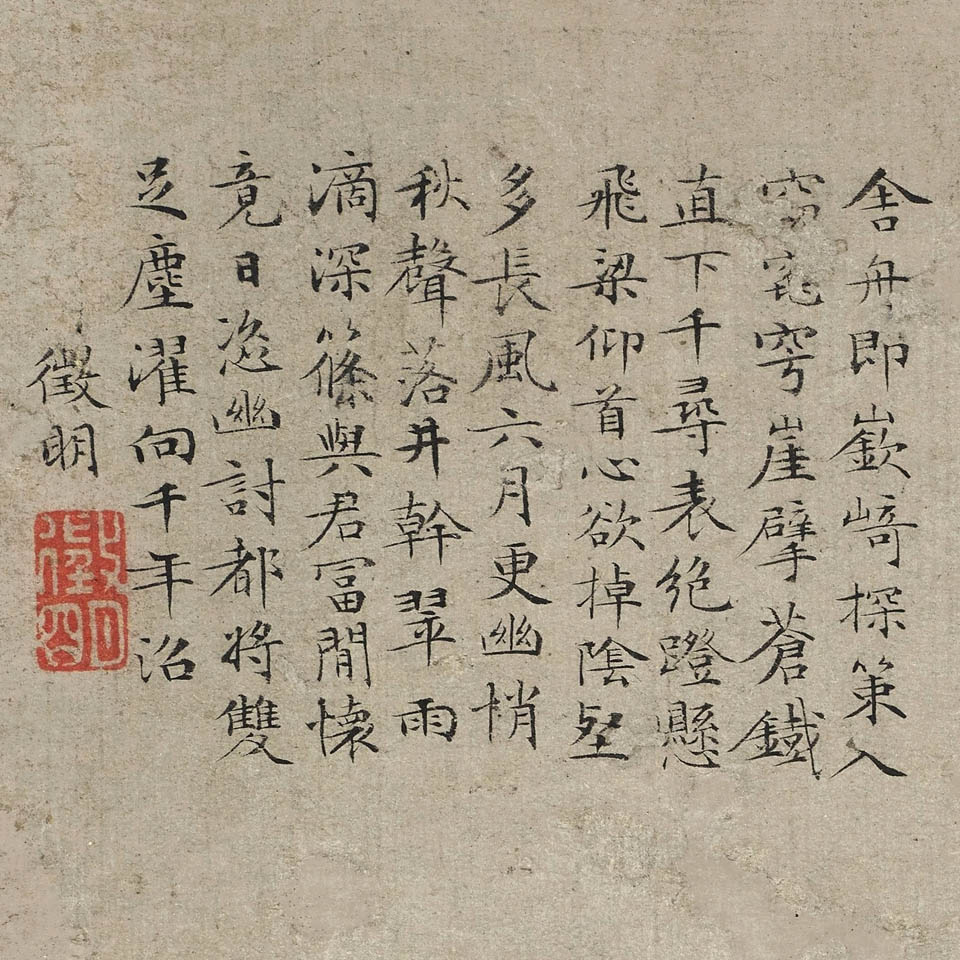 舍舟即嶔崎探策入
窈窕穹崖擘蒼鐵
直下千尋表絶蹬懸
飛梁仰首心欲掉陰壑
多長風六月更幽悄
秋聲落井幹翠雨
滴深篠與君富閒懷
竟日恣幽討都將雙
足塵濯向千年沼
徵明
徵明